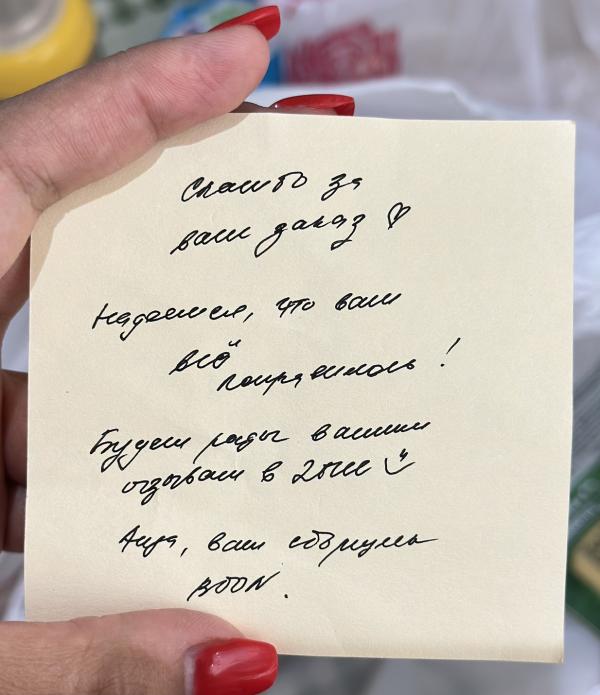 Спасибо за
ваш заказ ♡
Надеемся, что вам
всё
понравилось!
Будем рады вашим
отзывам в 2ГИС
ваш сборщик